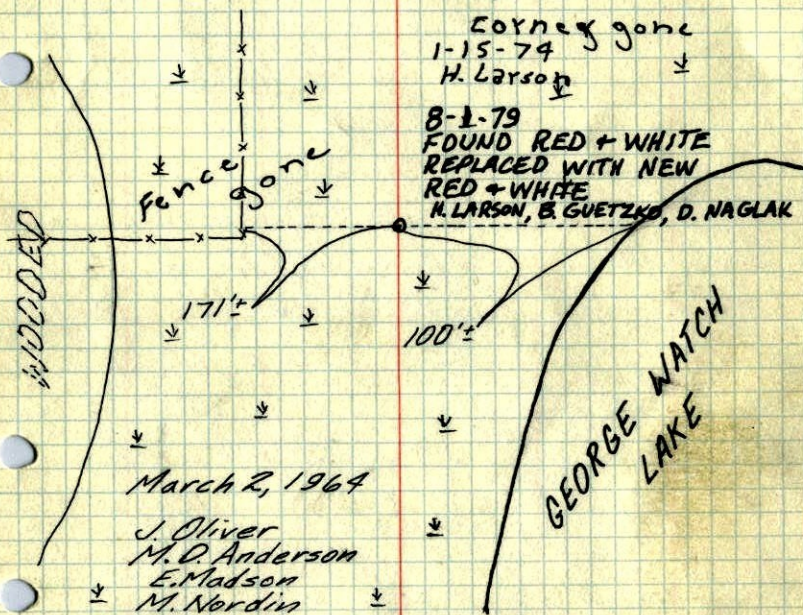 Corner gone
1-15-74
H. Larson
8-1-79
FOUND RED + WHITE
REPLACED WITH NEW
RED + WHITE
H. LARSON, B. GUETZKO, D. NAGLAK
Fence gone
WOODED
171'±
100'±
GEORGE WATCH
LAKE
March 2, 1964
J. Oliver
M.D. Anderson
E. Madson
M. Nordin